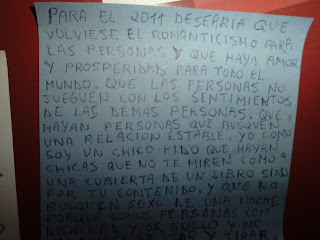 PARA EL 2011 DESEARIA QUE
VOLVIESE EL ROMANTICISMO PARA
LAS PERSONAS Y QUE HAYA AMOR
Y PROSPERIDAD PARA TODO EL
MUNDO. QUE LAS PERSONAS NO
JUEGUEN CON LOS SENTIMIENTOS
DE LAS DEMAS PERSONAS. QUE
HAYAN PERSONAS QUE BUSQUEN
UNA RELACION ESTABLE. YO COMO
SOY UN CHICO PIDO QUE HAYAN
CHICAS QUE NO TE MIREN COMO
UNA CUBIERTA DE UN LIBRO SINO
POR TU CONTENIDO. Y QUE NO
BUSQUEN SEXO DE UNA NOCHE
PORQUE SOMOS PERSONAS CON
DIGNIDAD Y ORGULLO Y ME
DE TIRAR